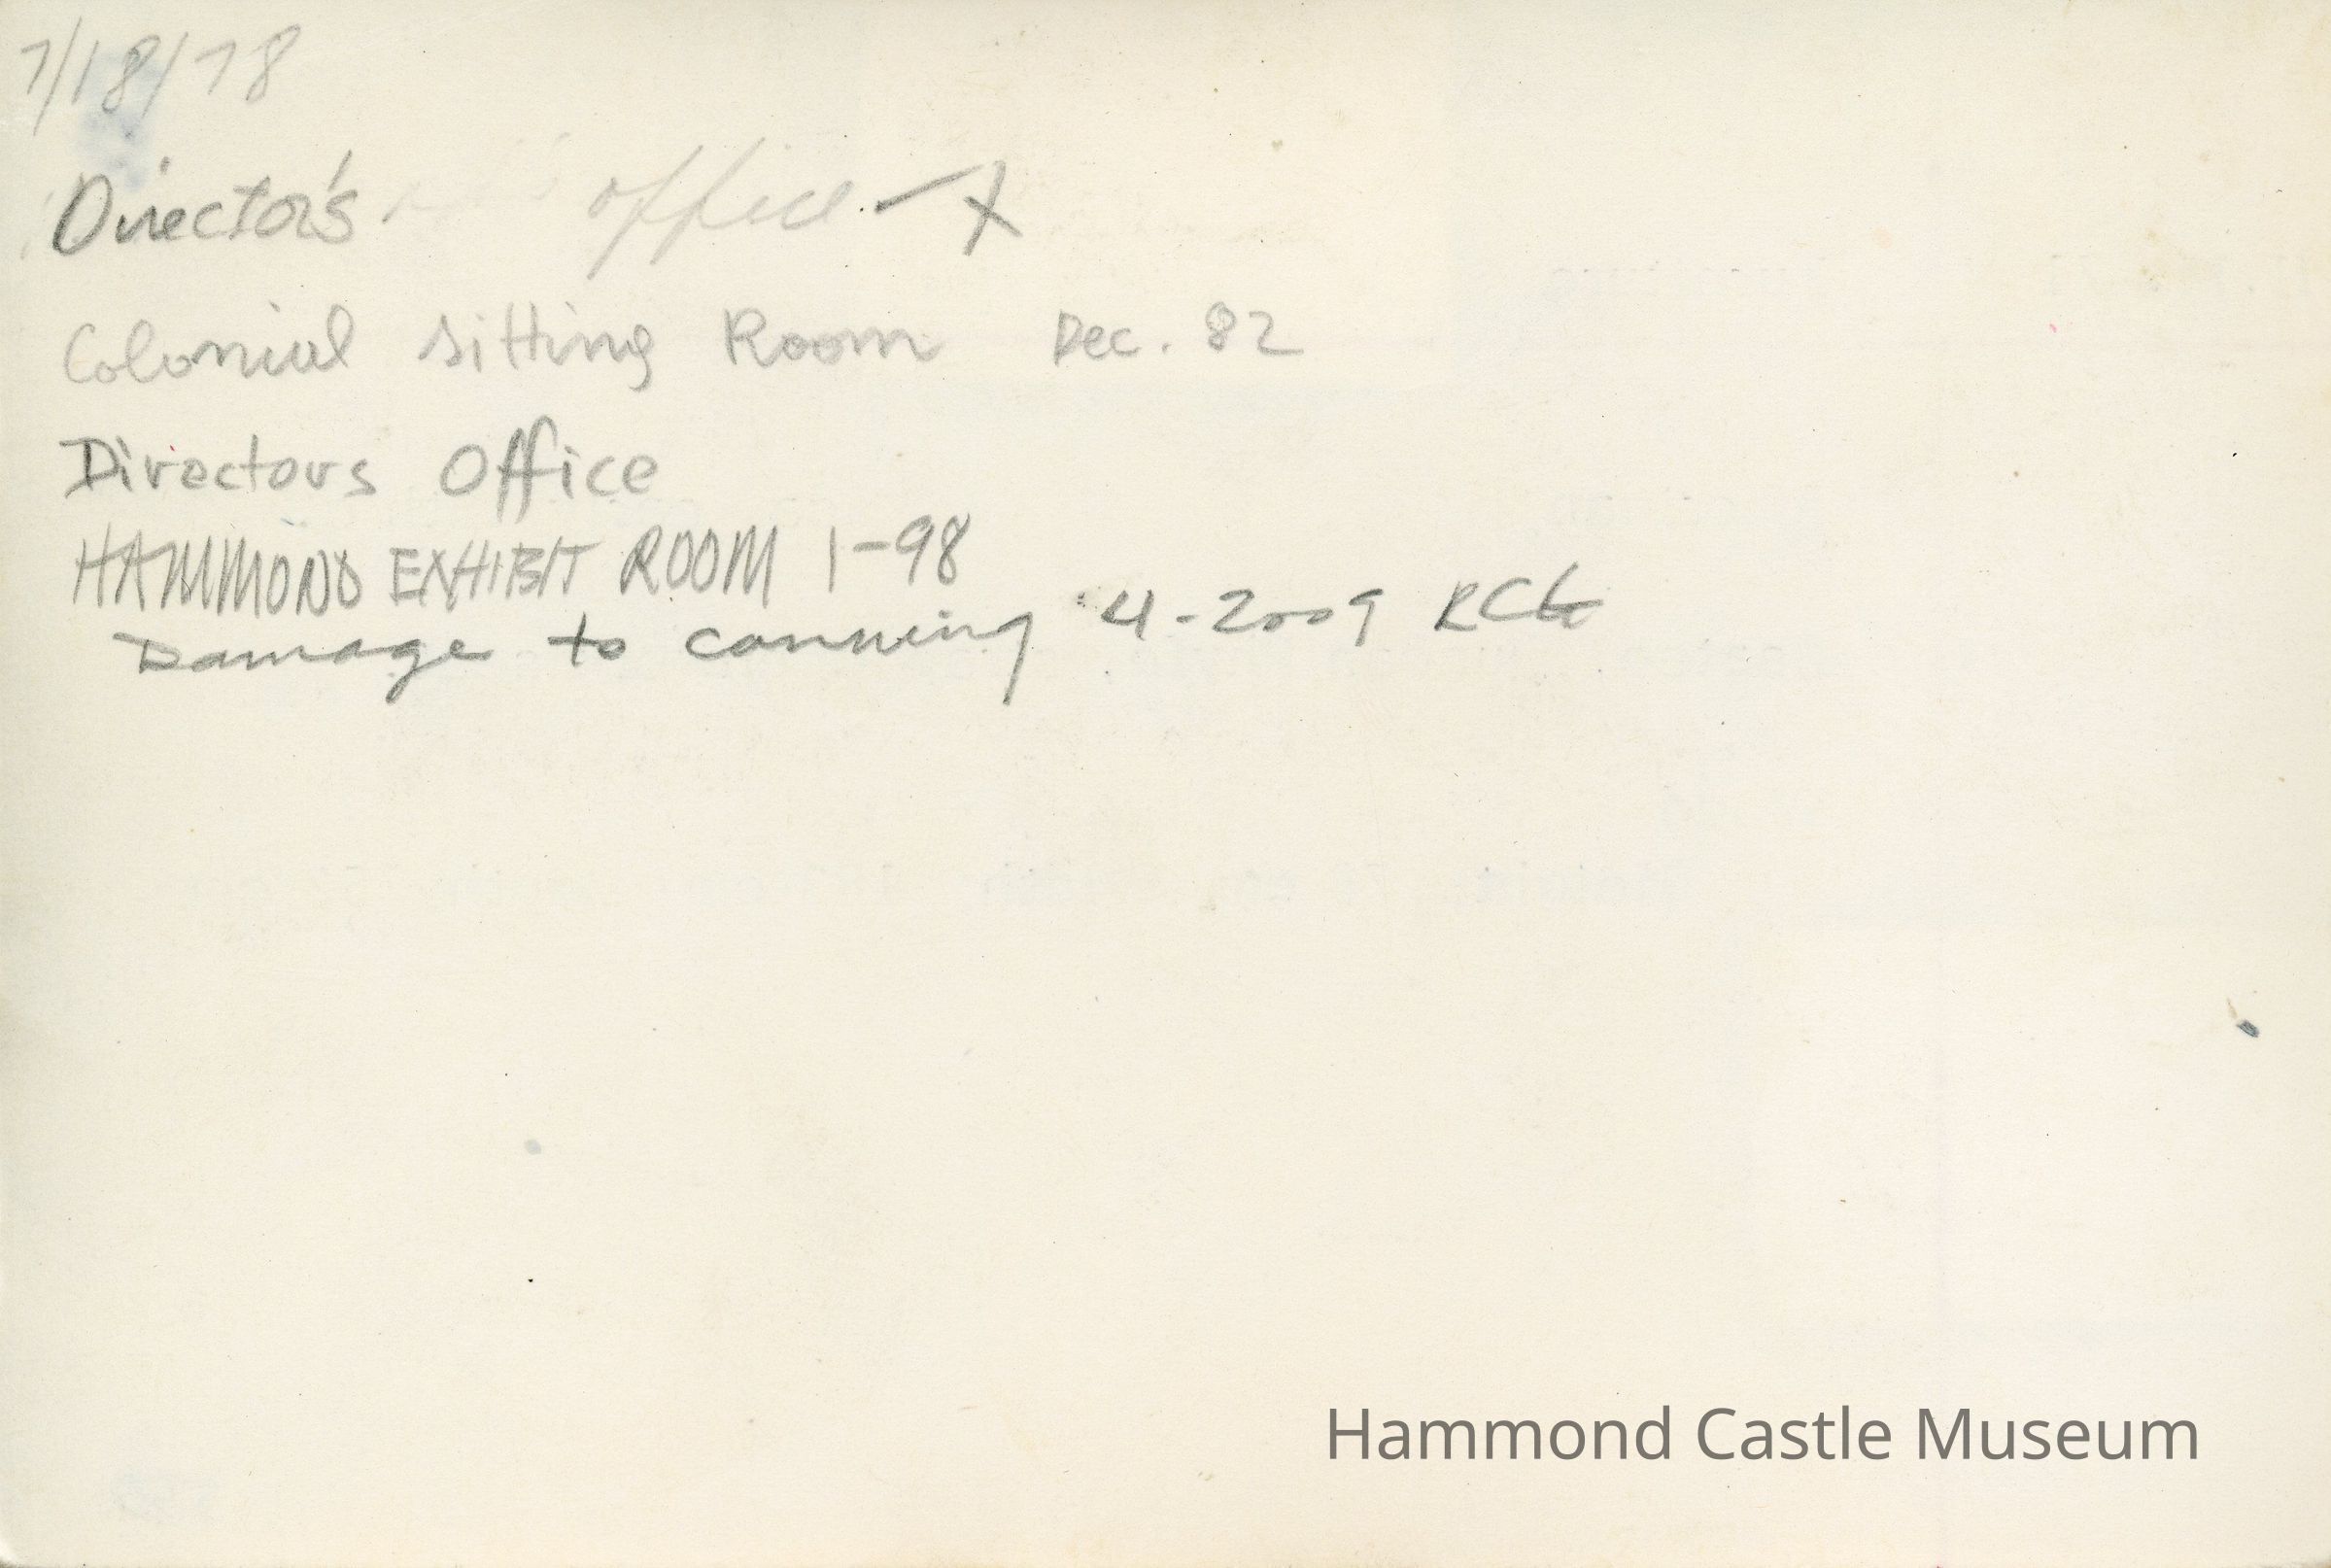 7/18/78
Director's office - X
Colonial Sitting Room Dec. 82
Directors Office
HAMMOND EXHIBIT ROOM 1-98
Damage to 4-2009
Hammond Castle Museum